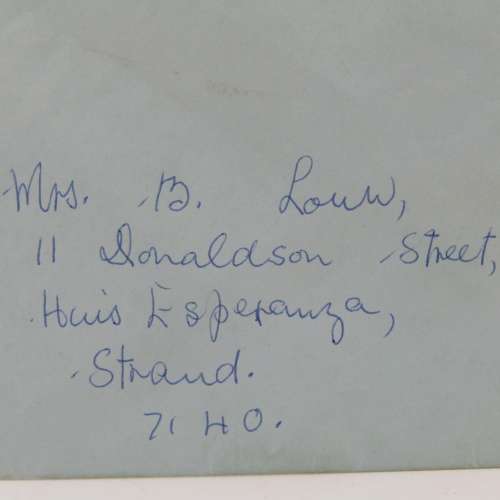 Mrs. B. Louw,
11 Donaldson Street,
Huis Esperanza,
Strand.
7140.